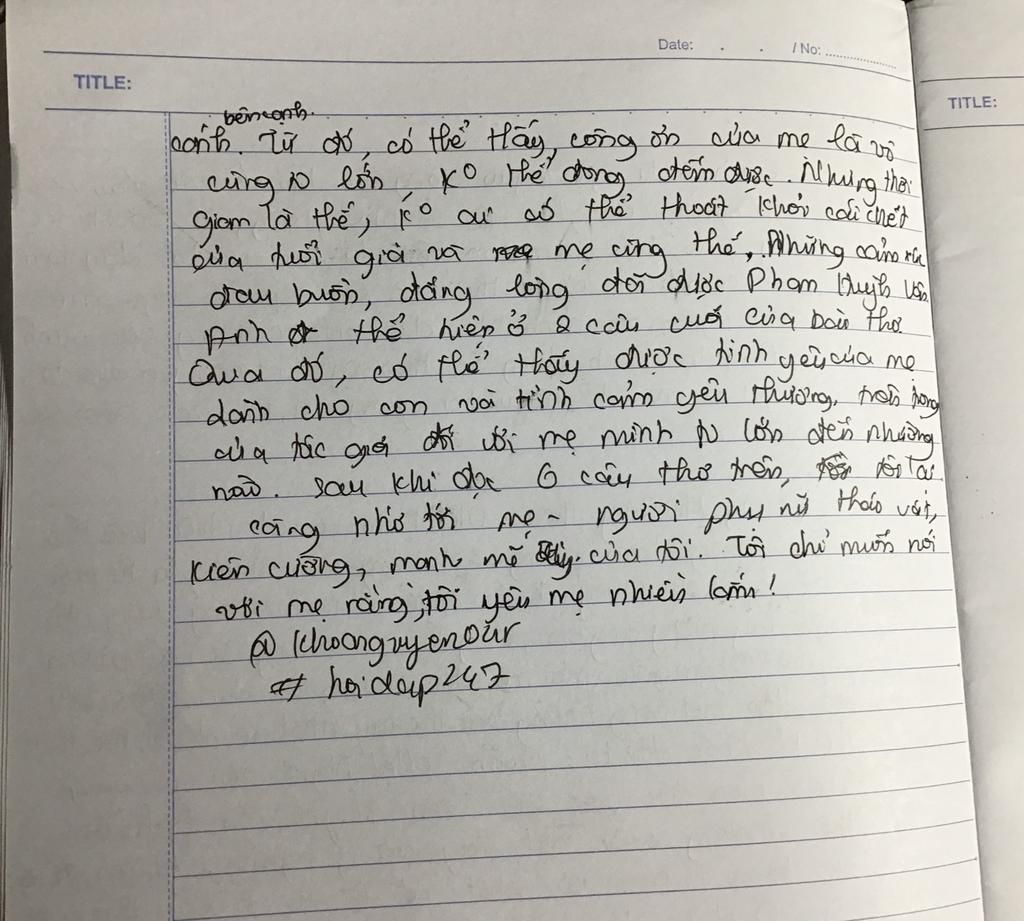 Date: . . / No: ....................
TITLE:
TITLE:
bên cạnh.
cạnh. Từ đó, có thể thấy, công ơn của mẹ là vô
cùng to lớn, k° thể đong đếm được. Nhưng thời
gian là thế, k° ai có thể thoát khỏi cái chết
của tuổi già và mẹ cũng thế. Những cảm xúc
đau buồn, đắng lòng đời được Phạm Huỳnh Vân
Anh thể hiện ở 2 câu cuối của bài thơ
Qua đó, có thể thấy được tình yêu của mẹ
dành cho con và tình cảm yêu thương, trân trọng
của tác giả đối với mẹ mình to lớn đến nhường
nào. Sau khi đọc 6 câu thơ trên, tôi lại
càng nhớ tới mẹ - người phụ nữ tháo vát,
kiên cường, mạnh mẽ của tôi. Tôi chỉ muốn nói
với mẹ rằng, tôi yêu mẹ nhiều lắm!
@ khoanguyen0ur
# hoidap247